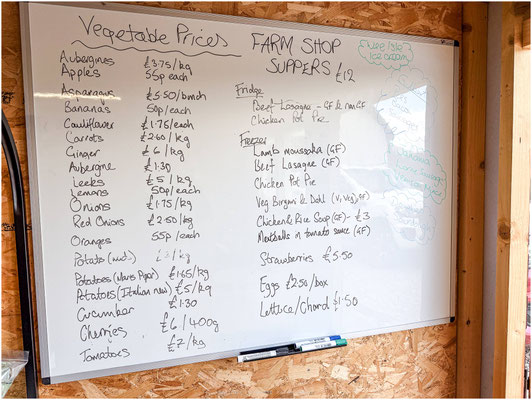 Vegetable Prices
Aubergines £3.75/kg
Apples 55p each
Asparagus £5.50/bunch
Bananas 50p/each
Cauliflower £1.75/each
Carrots £2.60/kg
Ginger £6/kg
Aubergine £1.30
Leeks £5/kg
Lemons 50p/each
Onions £1.75/kg
Red Onions £2.50/kg
Oranges 55p/each
Potato /kg
Potatoes (Maris Piper) £1.65/kg
Potatoes (Italian new) £5/kg
Cucumbar £1.30
Cherries £6/400g
Tomatoes £7/kg
FARM SHOP
SUPPERS £12
Fridge
Beef Lasagne - GF & non GF
Chicken Pot Pie
Freezer
Lamb moussaka (GF)
Beef Lasagne (GF)
Chicken Pot Pie
Veg Biryani & Dahl (V, Veg, GF)
Chicken & Rice Soup (GF) - £3
Meatballs in tomato sauce (GF)
Strawberries £5.50
Eggs £2.50/box
Lettice/Chard £1.50
ice cream